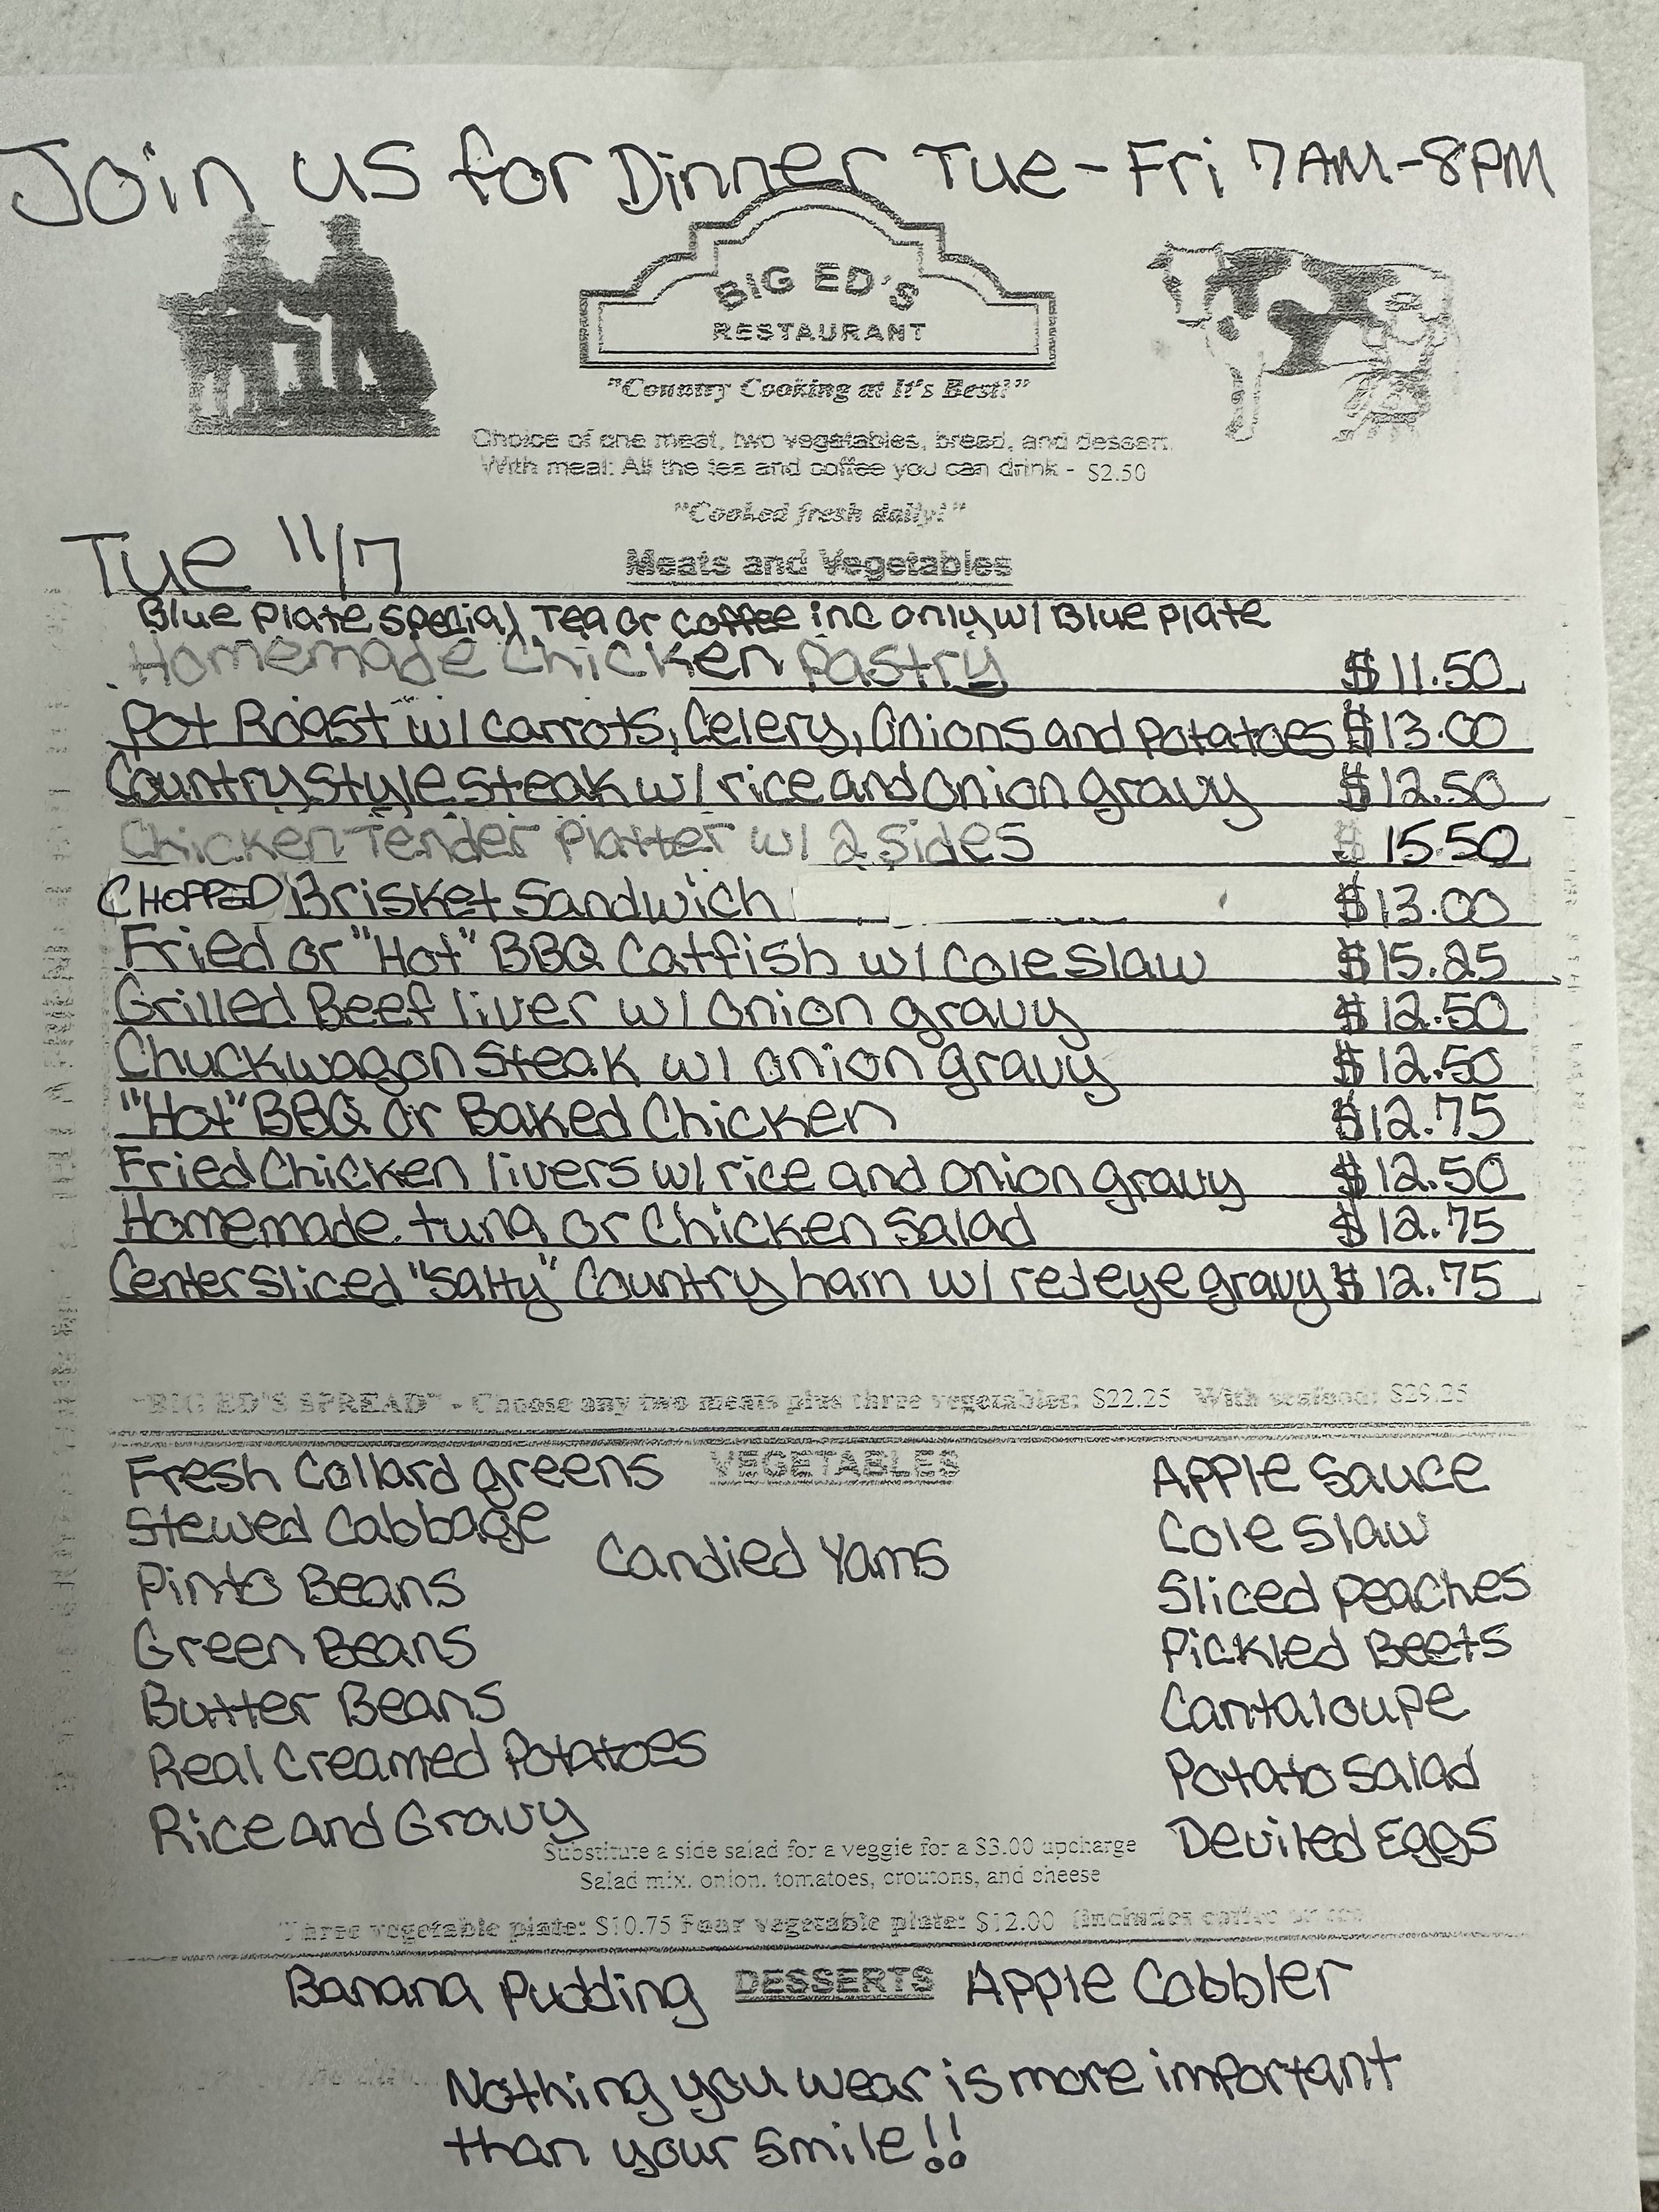 Join us for Dinner Tue-Fri 7AM-8PM
BIG ED'S
RESTAURANT
"Country Cooking at It's Best!"
Choice of one meat, two vegatables, bread, and dessert.
With meal: All the tea and coffee you can drink - $2.50
"Cooked fresh daily!"
Tue 11/7
Meats and Vegetables
Blue Plate Special Tea or coffee inc only w/ Blue Plate
Homemade Chicken Pastry $11.50
Pot Roast w/ carrots, Celery, Onions and Potatoes $13.00
Country Style Steak w/ rice and onion gravy $12.50
Chicken Tender Platter w/ 2 Sides $15.50
CHOPPED Brisket Sandwich $13.00
Fried or "Hot" BBQ Catfish w/ Cole Slaw $15.25
Grilled Beef liver w/ onion gravy $12.50
Chuckwagon Steak w/ onion gravy $12.50
"Hot" BBQ or Baked Chicken $12.75
Fried Chicken livers w/ rice and onion gravy $12.50
Homemade tuna or Chicken Salad $12.75
Center Sliced "Salty" Country ham w/ redeye gravy $12.75
"BIG ED'S SPREAD" - Choose any two meats plus three vegetables: $22.25 With seafood: $29.25
VEGETABLES
Fresh Collard greens
Stewed Cabbage
Pinto Beans
Green Beans
Butter Beans
Real Creamed Potatoes
Rice and Gravy
Candied Yams
Apple Sauce
Cole Slaw
Sliced Peaches
Pickled Beets
Cantaloupe
Potato Salad
Deviled Eggs
Substitute a side salad for a veggie for a $3.00 upcharge
Salad mix, onion, tomatoes, croutons, and cheese
Three vegetable plate: $10.75 Four vegetable plate: $12.00 (includes coffee or tea
Banana Pudding DESSERTS Apple Cobbler
Nothing you wear is more important
than your Smile!!